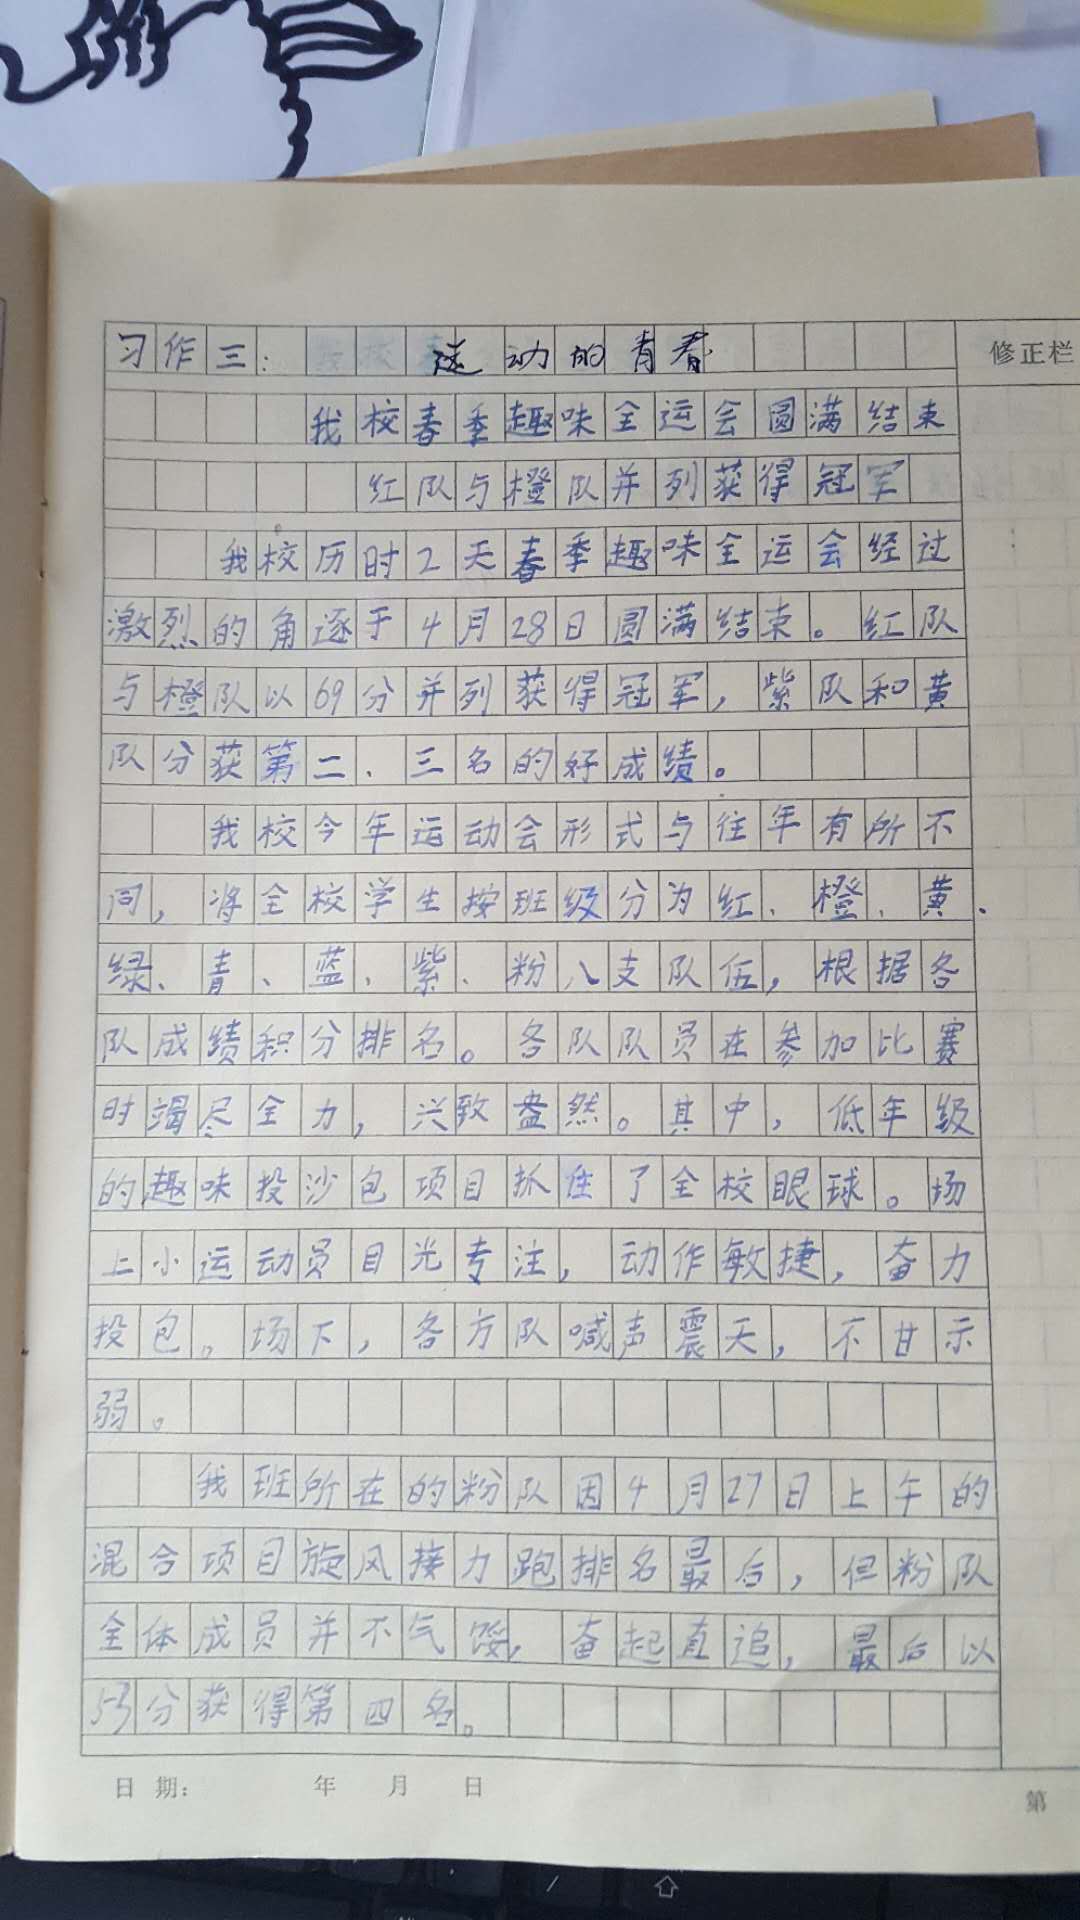 习作三：运动的青春
修正栏
我校春季趣味全运会圆满结束
红队与橙队并列获得冠军
我校历时2天春季趣味全运会经过
激烈的角逐于4月28日圆满结束。红队
与橙队以69分并列获得冠军，紫队和黄
队分获第二、三名的好成绩。
我校今年运动会形式与往年有所不
同，将全校学生按班级分为红、橙、黄、
绿、青、蓝、紫、粉八支队伍，根据各
队成绩积分排名。各队队员在参加比赛
时竭尽全力，兴致盎然。其中，低年级
的趣味投沙包项目抓住了全校眼球。场
上小运动员目光专注，动作敏捷，奋力
投包。场下，各方队喊声震天，不甘示
弱。
我班所在的粉队因4月27日上午的
混合项目旋风接力跑排名最后，但粉队
全体成员并不气馁，奋起直追，最后以
53分获得第四名。
日期： 年 月 日
第